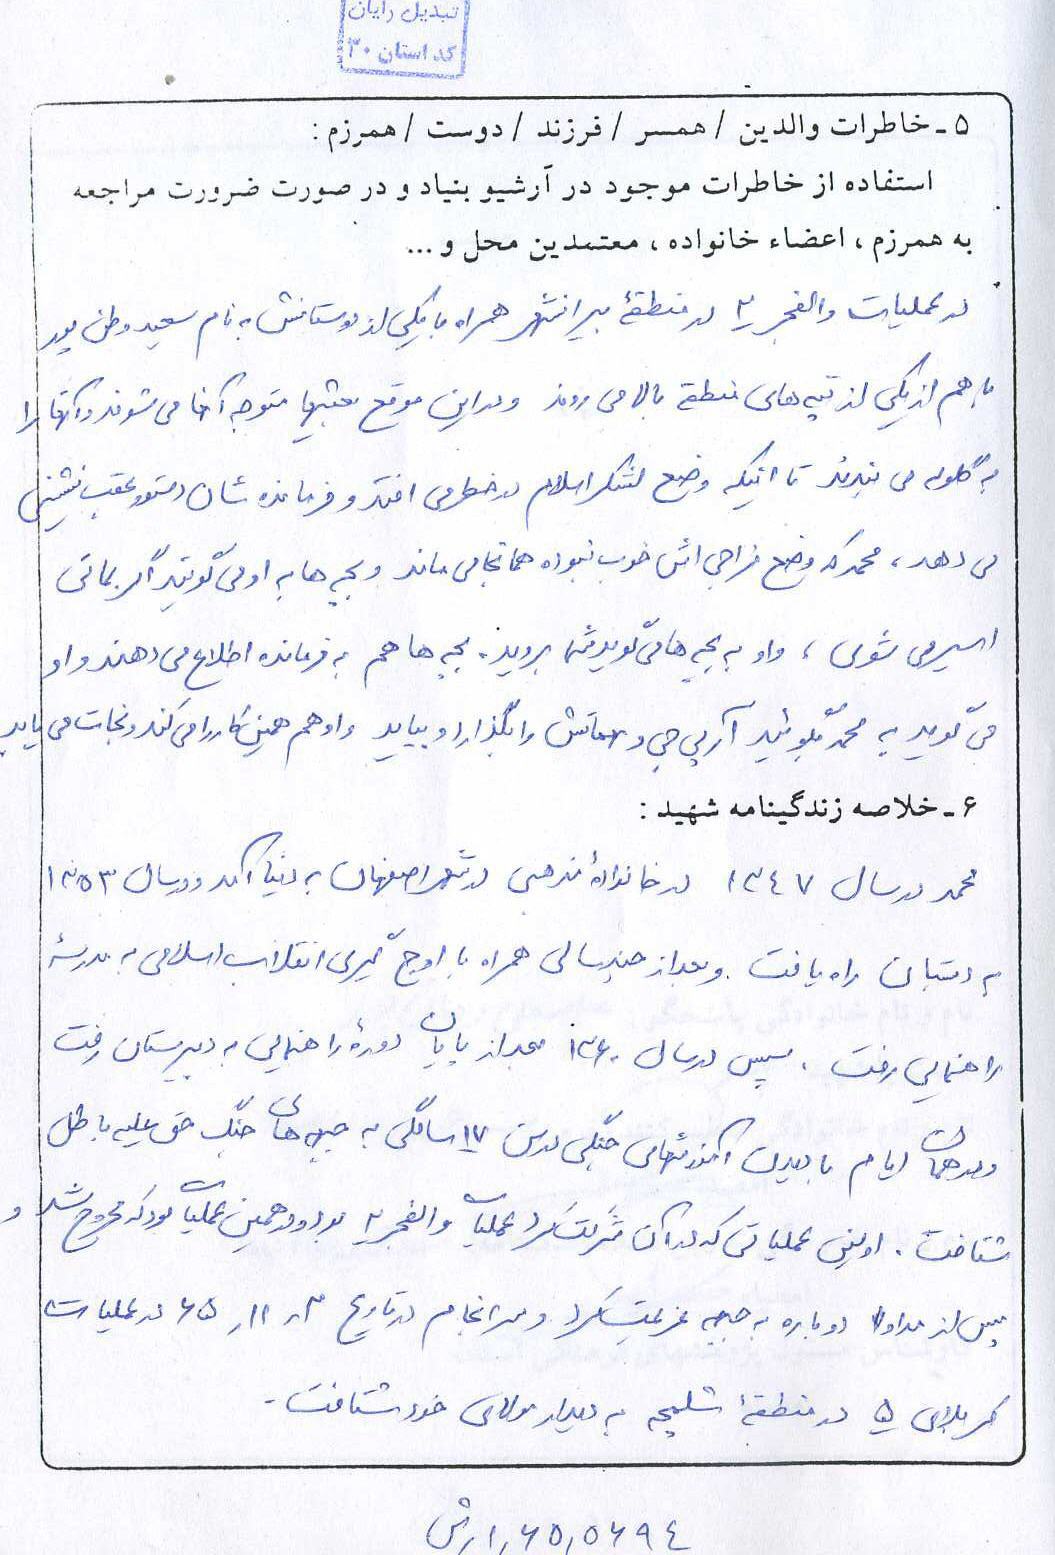 تبدیل رایان
کد استان ۳۰
۵ ـ خاطرات والدین / همسر / فرزند / دوست / همرزم :
استفاده از خاطرات موجود در آرشیو بنیاد و در صورت ضرورت مراجعه
به همرزم ، اعضاء خانواده ، معتمدین محل و ...
در عملیات والفجر ۲ در منطقهٔ پیرانشهر همراه با یکی از دوستانش به نام سعید وطن پور
با هم از یکی از تپه‌های منطقه بالا می روند و در این موقع بعثیها متوجه آنها می شوند و آنها را
به گلوله می بندند تا اینکه وضع لشکر اسلام در خطر می افتد و فرمانده شان دستور عقب نشینی
می دهد ، محمد که وضع مزاجی اش خوب نبوده همانجا می ماند و بچه ها به او می گویند اگر بمانی
اسیر می شوی ، و او به بچه ها می گوید شما بروید . بچه ها هم به فرمانده اطلاع می دهند و او
می گوید به محمد بگوئید آرپی جی و مهماتش را بگذارد و بیاید و او هم همین کار را می کند و نجات می یابد
۶ ـ خلاصه زندگینامه شهید :
محمد در سال ۱۳۴۷ در خانوادهٔ مذهبی در شهر اصفهان به دنیا آمد و در سال ۱۳۵۳
به دبستان راه یافت . و بعد از چند سالی همراه با اوج گیری انقلاب اسلامی به مدرسهٔ
راهنمایی رفت . سپس در سال ۱۳۶۰ بعد از پایان دورهٔ راهنمایی به دبیرستان رفت
و در همان ایام با دیدن آموزشهای جنگی در سن ۱۷ سالگی به جبهه های جنگ حق علیه باطل
شتافت . اولین عملیاتی که در آن شرکت کرد عملیات والفجر ۲ بود و در همین عملیات بود که مجروح شد و
پس از مداوا دوباره به جبهه عزیمت کرد و سرانجام در تاریخ ۳ر۱۱ر۶۵ در عملیات
کربلای ۵ در منطقهٔ شلمچه به دیدار مولای خود شتافت -